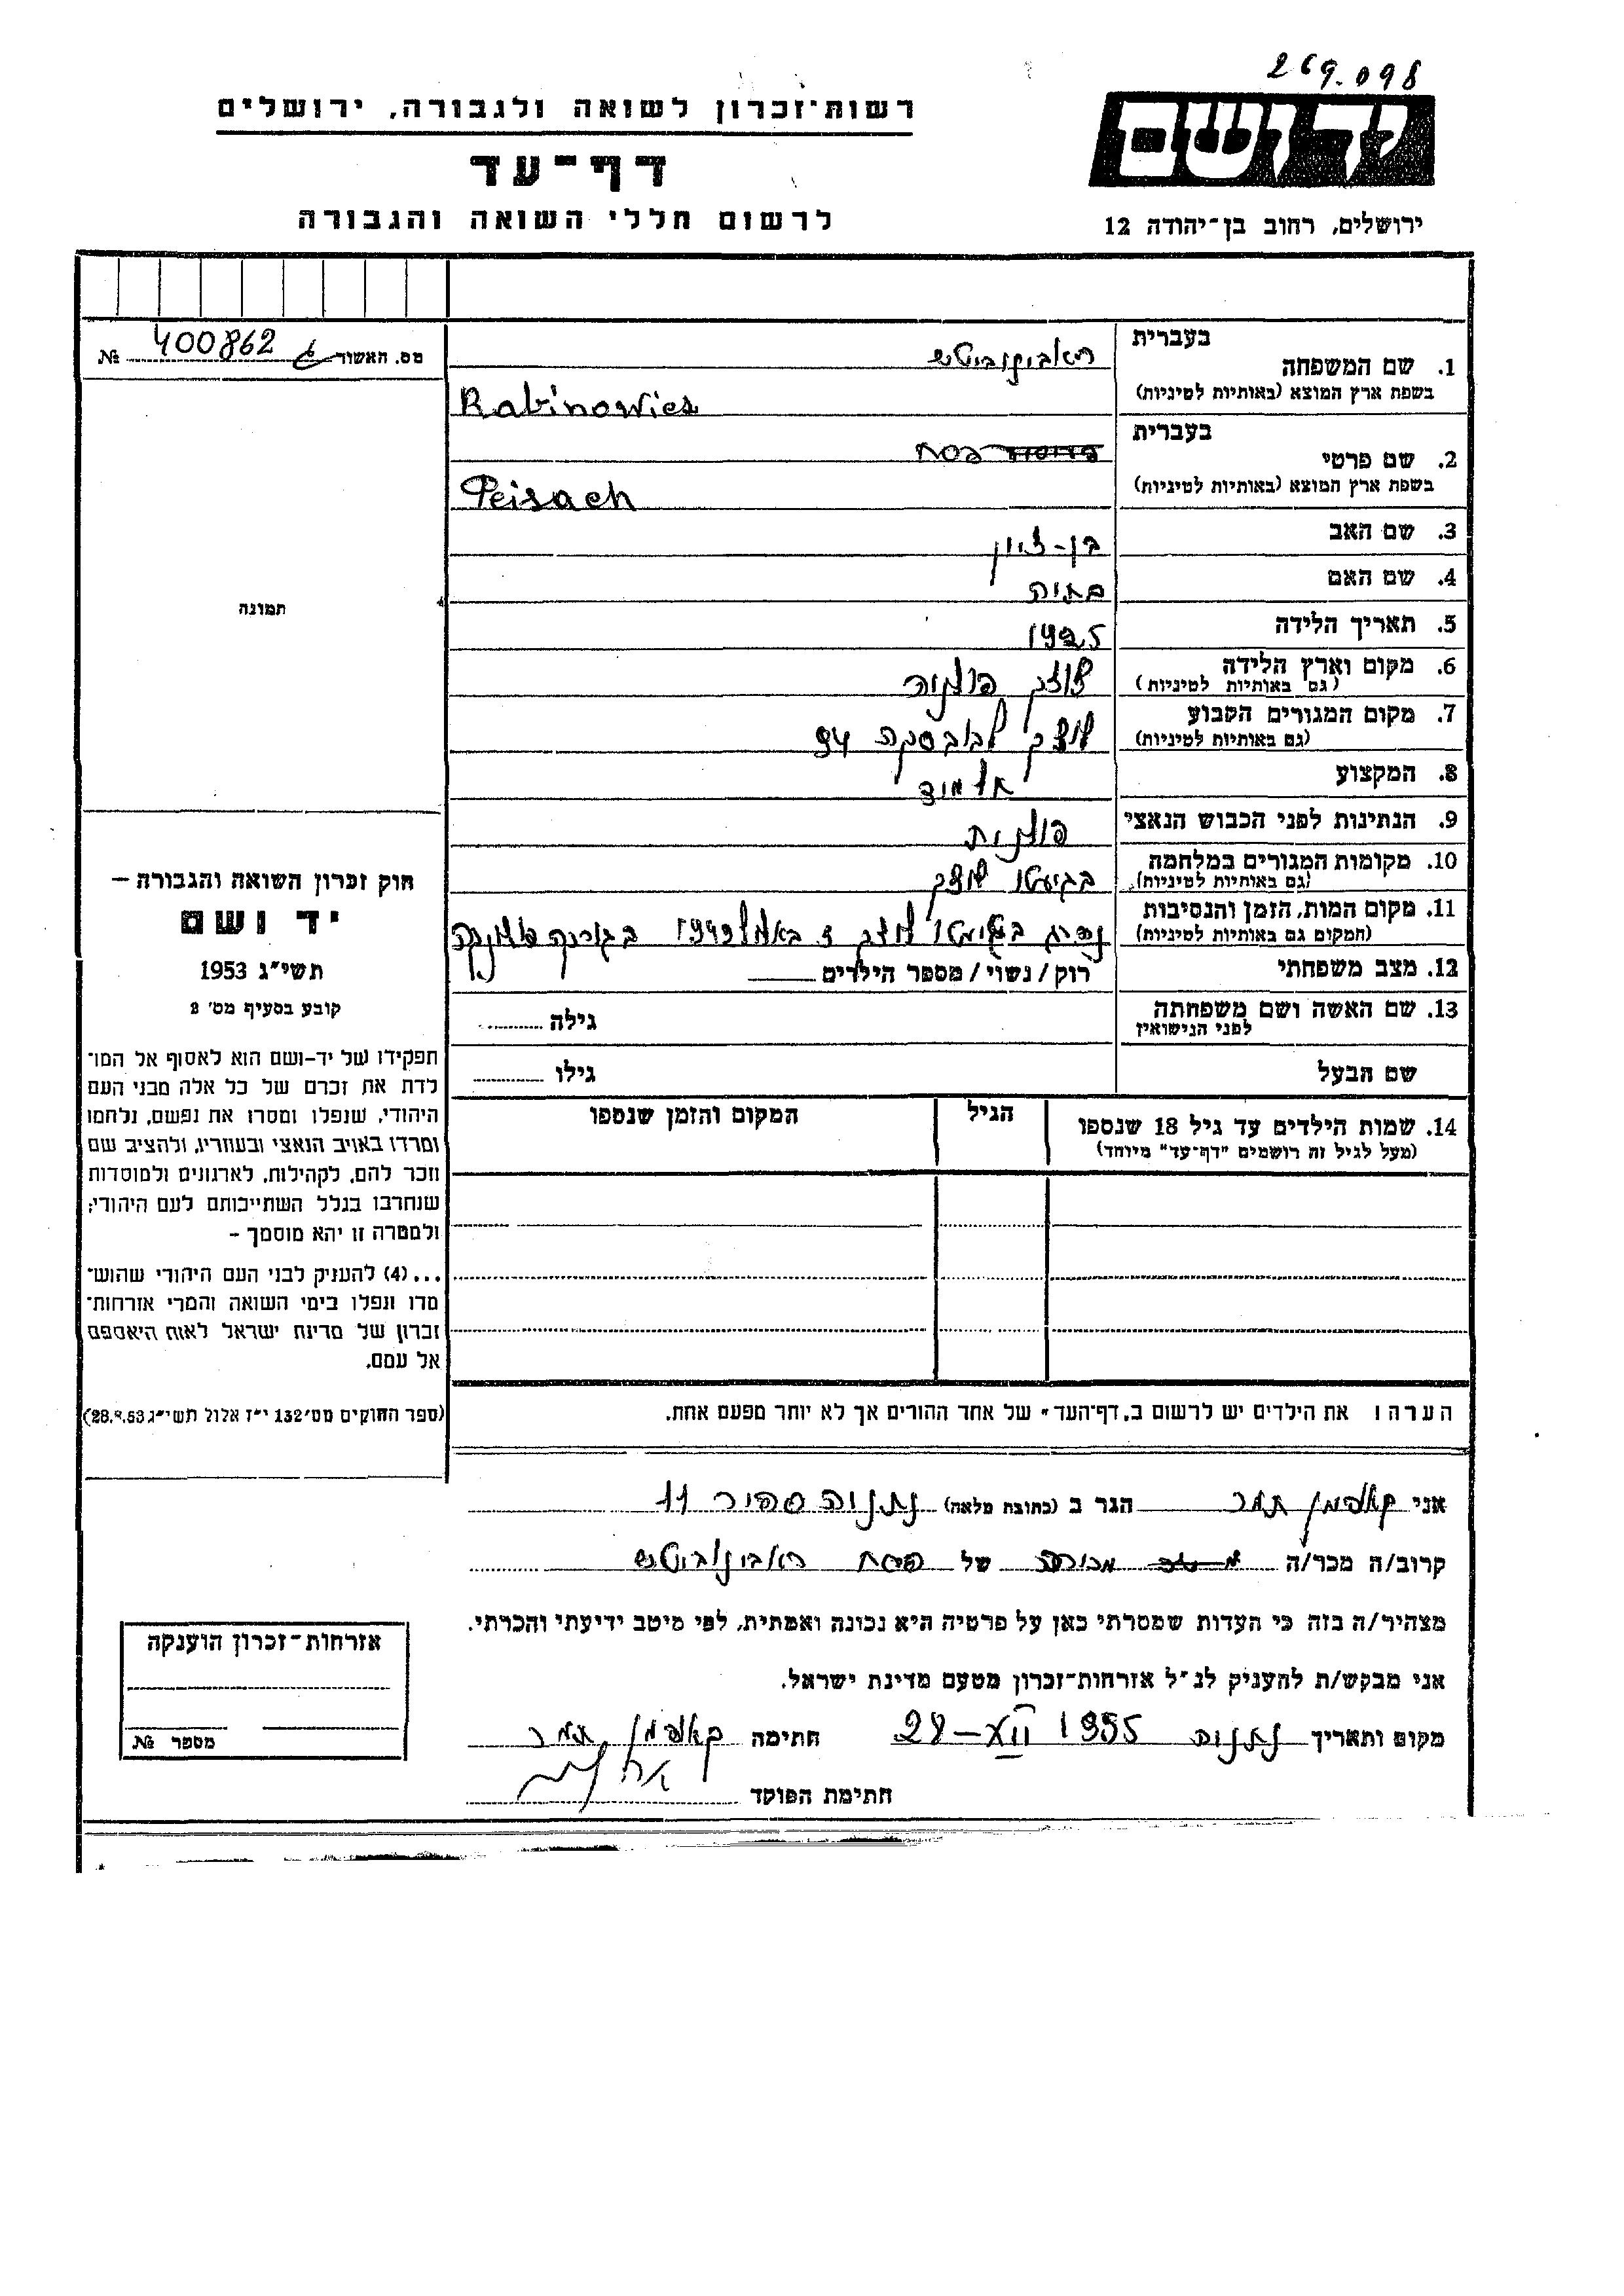 269.098
רשות־זכרון לשואה ולגבורה, ירושלים
יד ושם
דף־עד
לרשום חללי השואה והגבורה
ירושלים, רחוב בן־יהודה 12
בעברית
1. שם המשפחה ראבינוביטש
בשפת ארץ המוצא (באותיות לטיניות) Rabinowics
מס. האשור 400862 №
בעברית
2. שם פרטי פסח
בשפת ארץ המוצא (באותיות לטיניות) Peisach
3. שם האב בן-ציון
4. שם האם בתיה
5. תאריך הלידה 1925
6. מקום וארץ הלידה לודז פולניה
(גם באותיות לטיניות)
7. מקום המגורים הקבוע 94
(גם באותיות לטיניות)
8. המקצוע תלמיד
9. הנתינות לפני הכבוש הנאצי פולנית
10. מקומות המגורים במלחמה בגיטו
(גם באותיות לטיניות)
11. מקום המות, הזמן והנסיבות
(המקום גם באותיות לטיניות)
12. מצב משפחתי רוק / נשוי / מספר הילדים
13. שם האשה ושם משפחתה גילה
לפני הנישואין
שם הבעל גילו
14. שמות הילדים עד גיל 18 שנספו הגיל המקום והזמן שנספו
(מעל לגיל זה רושמים "דף־עד" מיוחד)
הערה ו את הילדים יש לרשום ב„דף־העד" של אחד ההורים אך לא יותר מפעם אחת.
תמונה
חוק זכרון השואה והגבורה —
יד ושם
תשי"ג 1953
קובע בסעיף מס' 2
תפקידו של יד-ושם הוא לאסוף אל המו־
לדת את זכרם של כל אלה מבני העם
היהודי, שנפלו ומסרו את נפשם, נלחמו
ומרדו באויב הנאצי ובעוזריו, ולהציב שם
וזכר להם, לקהילות, לארגונים ולמוסדות
שנחרבו בגלל השתייכותם לעם היהודי;
ולמטרה זו יהא מוסמך –
... (4) להעניק לבני העם היהודי שהוש־
מדו ונפלו בימי השואה והמרי אזרחות־
זכרון של מדינת ישראל לאות היאספם
אל עמם.
(ספר החוקים מס' 132 י"ז אלול תשי"ג 28.8.53)
אני קאופמן תמר הגר ב (כתובת מלאה) נתניה ספיר 11
קרוב/ה מכר/ה מכירה של פסח ראבינוביטש
מצהיר/ה בזה כי העדות שמסרתי כאן על פרטיה היא נכונה ואמתית, לפי מיטב ידיעתי והכרתי.
אני מבקש/ת להעניק לנ"ל אזרחות-זכרון מטעם מדינת ישראל.
מקום ותאריך נתניה 28-XII 1955 חתימה קאופמן תמר
חתימת הפוקד
אזרחות-זכרון הוענקה
מספר №